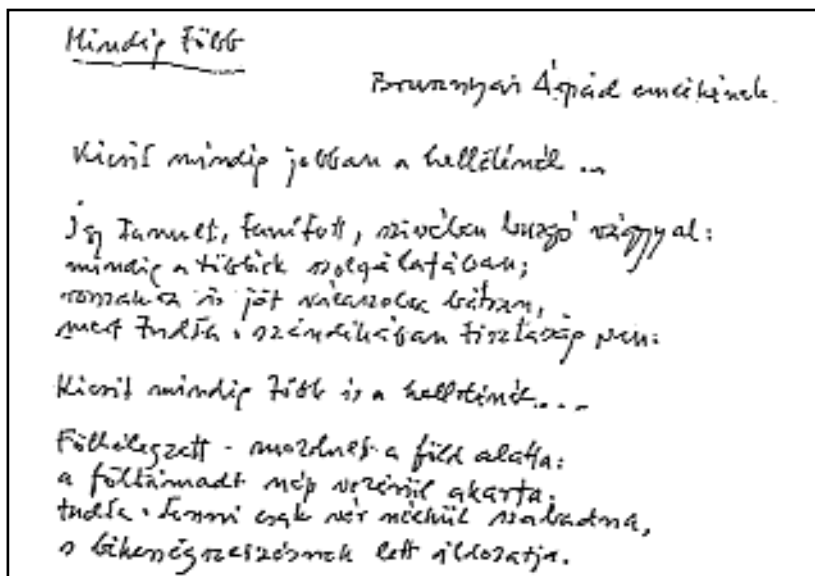 Mindig Több
Brusznyai Árpád emlékének
Kicsit mindig jobban a kelleténél ...
Így tanult, tanított, szívében buzgó vággyal:
mindig a többiek szolgálatában;
rosszakra is jót válaszolva bátran,
mert tudta: szándékában tisztaság van:
Kicsit mindig több is a kelleténél....
Föllélegzett - mozdult a föld alatta:
a föltámadt nép vezérül akarta.
tudta: tenni csak vér nélkül szabadna,
s békességszerzésnek lett áldozatja.